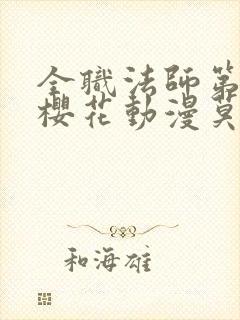 全職法師第
櫻花動漫莫
和海雄